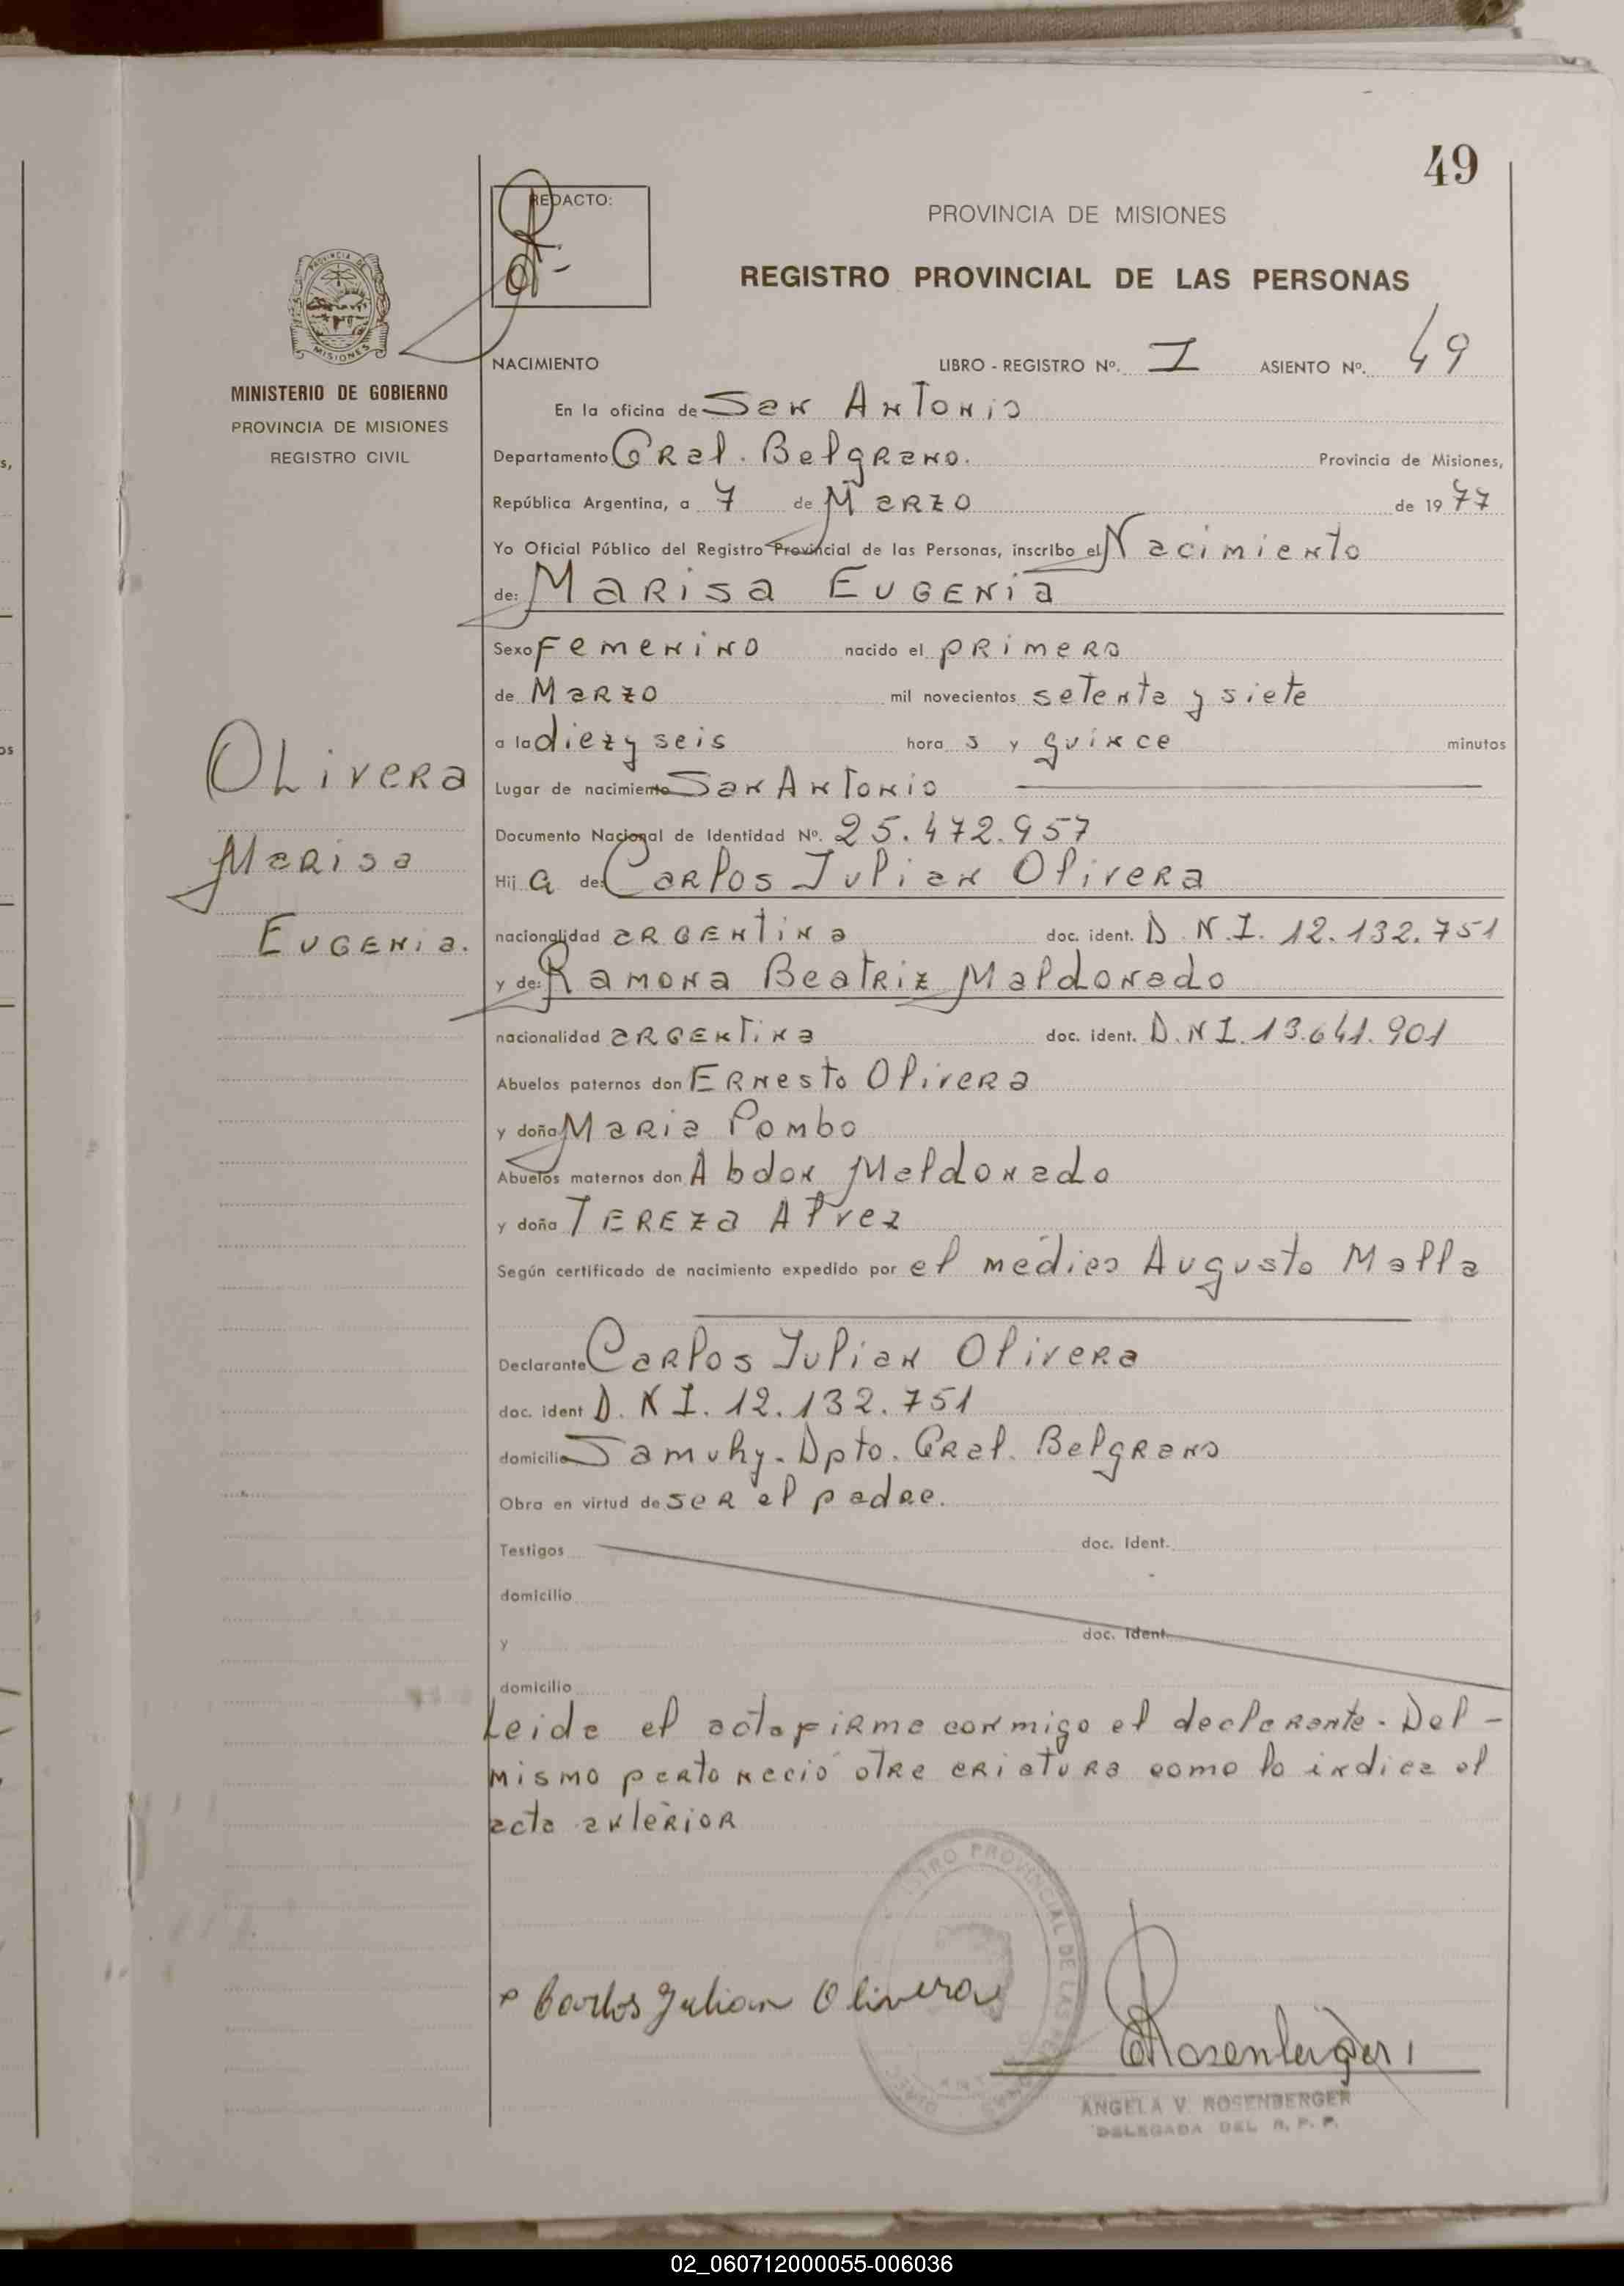 49
REDACTO:
PROVINCIA DE MISIONES
REGISTRO PROVINCIAL DE LAS PERSONAS
PROVINCIA DE
MISIONES
MINISTERIO DE GOBIERNO
PROVINCIA DE MISIONES
REGISTRO CIVIL
NACIMIENTO LIBRO - REGISTRO Nº. I ASIENTO Nº. 49
En la oficina de San Antonio
Departamento Gral. Belgrano. Provincia de Misiones,
República Argentina, a 7 de Marzo de 1977
Yo Oficial Público del Registro Provincial de las Personas, inscribo el Nacimiento
de: Marisa Eugenia
Sexo Femenino nacido el primero
de Marzo mil novecientos setenta y siete
a la diez y seis hora s y quince minutos
Lugar de nacimiento San Antonio
Documento Nacional de Identidad Nº. 25.472.957
Hij a de: Carlos Julian Olivera
nacionalidad argentina doc. ident. D.N.I. 12.132.751
y de: Ramona Beatriz Maldonado
nacionalidad argentina doc. ident. D.N.I. 13.641.901
Abuelos paternos don Ernesto Olivera
y doña Maria Pombo
Abuelos maternos don Abdon Maldonado
y doña Tereza Alvez
Según certificado de nacimiento expedido por el médico Augusto Malla
Declarante Carlos Julian Olivera
doc. ident D.N.I. 12.132.751
domicilio Samuhy. Dpto. Gral. Belgrano
Obra en virtud de ser el padre.
Testigos doc. Ident.
domicilio
y doc. Ident.
domicilio
Leida el acta firma conmigo el declarante. Del-
mismo parto nació otra criatura como lo indica el
acta anterior
Olivera
Marisa
Eugenia.
Carlos Julian Olivera
Rosenberger
ANGELA V. ROSENBERGER
DELEGADA DEL R. P. P.
02_060712000055-006036